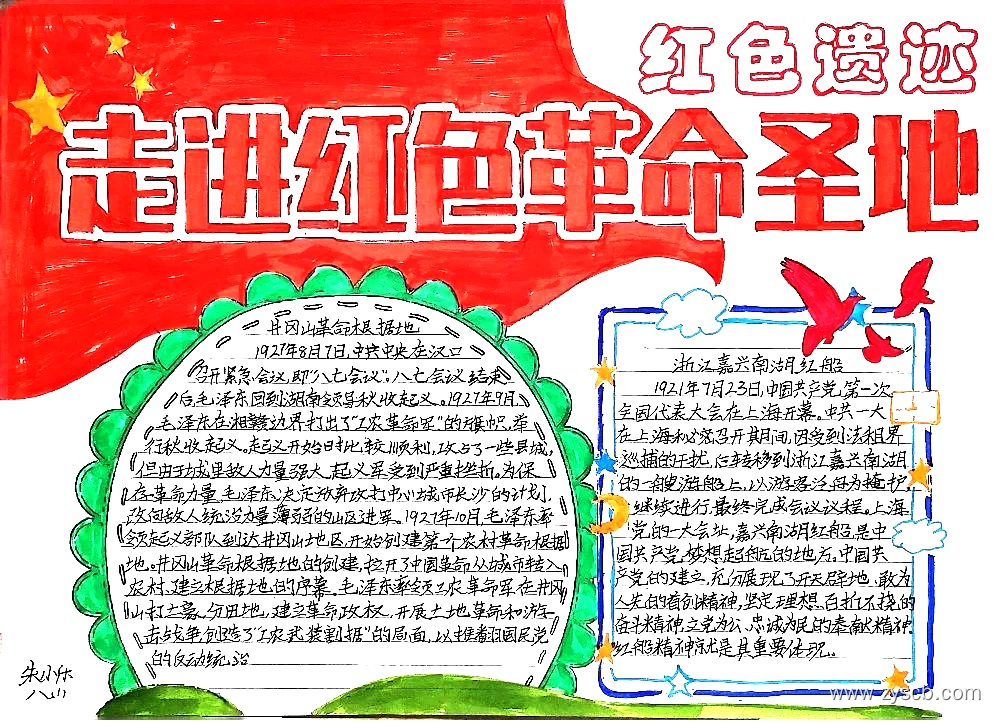 红色遗迹
走进红色革命圣地
井冈山革命根据地
1927年8月7日,中共中央在汉口
召开紧急会议,即"八七会议"。八七会议结束
后毛泽东回到湖南领导秋收起义。1927年9月,
毛泽东在湘赣边界打出了"工农革命军"的旗帜,举
行秋收起义。起义开始时比较顺利,攻占了一些县城,
但由于城里敌人力量强大,起义军受到严重挫折。为保
存革命力量,毛泽东决定放弃攻打中心城市长沙的计划,
改向敌人统治力量薄弱的山区进军。1927年10月,毛泽东率
领起义部队到达井冈山地区,开始创建第一个农村革命根据
地。井冈山革命根据地的创建,拉开了中国革命从城市转入
农村、建立根据地的序幕。毛泽东率领工农革命军在井冈
山打土豪、分田地,建立革命政权,开展土地革命和游
击战争,创造了"工农武装割据"的局面,以推翻国民党
的反动统治
浙江嘉兴南湖红船
1921年7月23日,中国共产党第一次
全国代表大会在上海开幕。中共一大
在上海秘密召开其间,因受到法租界
巡捕的干扰,后转移到浙江嘉兴南湖
的一艘游船上,以游客泛舟为掩护,
继续进行,最终完成会议议程。上海
党的一大会址,嘉兴南湖红船是中
国共产党梦想起航的地方。中国共
产党的建立,充份展现了开天辟地、敢为
人先的首创精神,坚定理想、百折不挠的
奋斗精神,立党为公、忠诚为民的奉献精神。
红船精神就是其重要体现。
八
www.zyscb.com